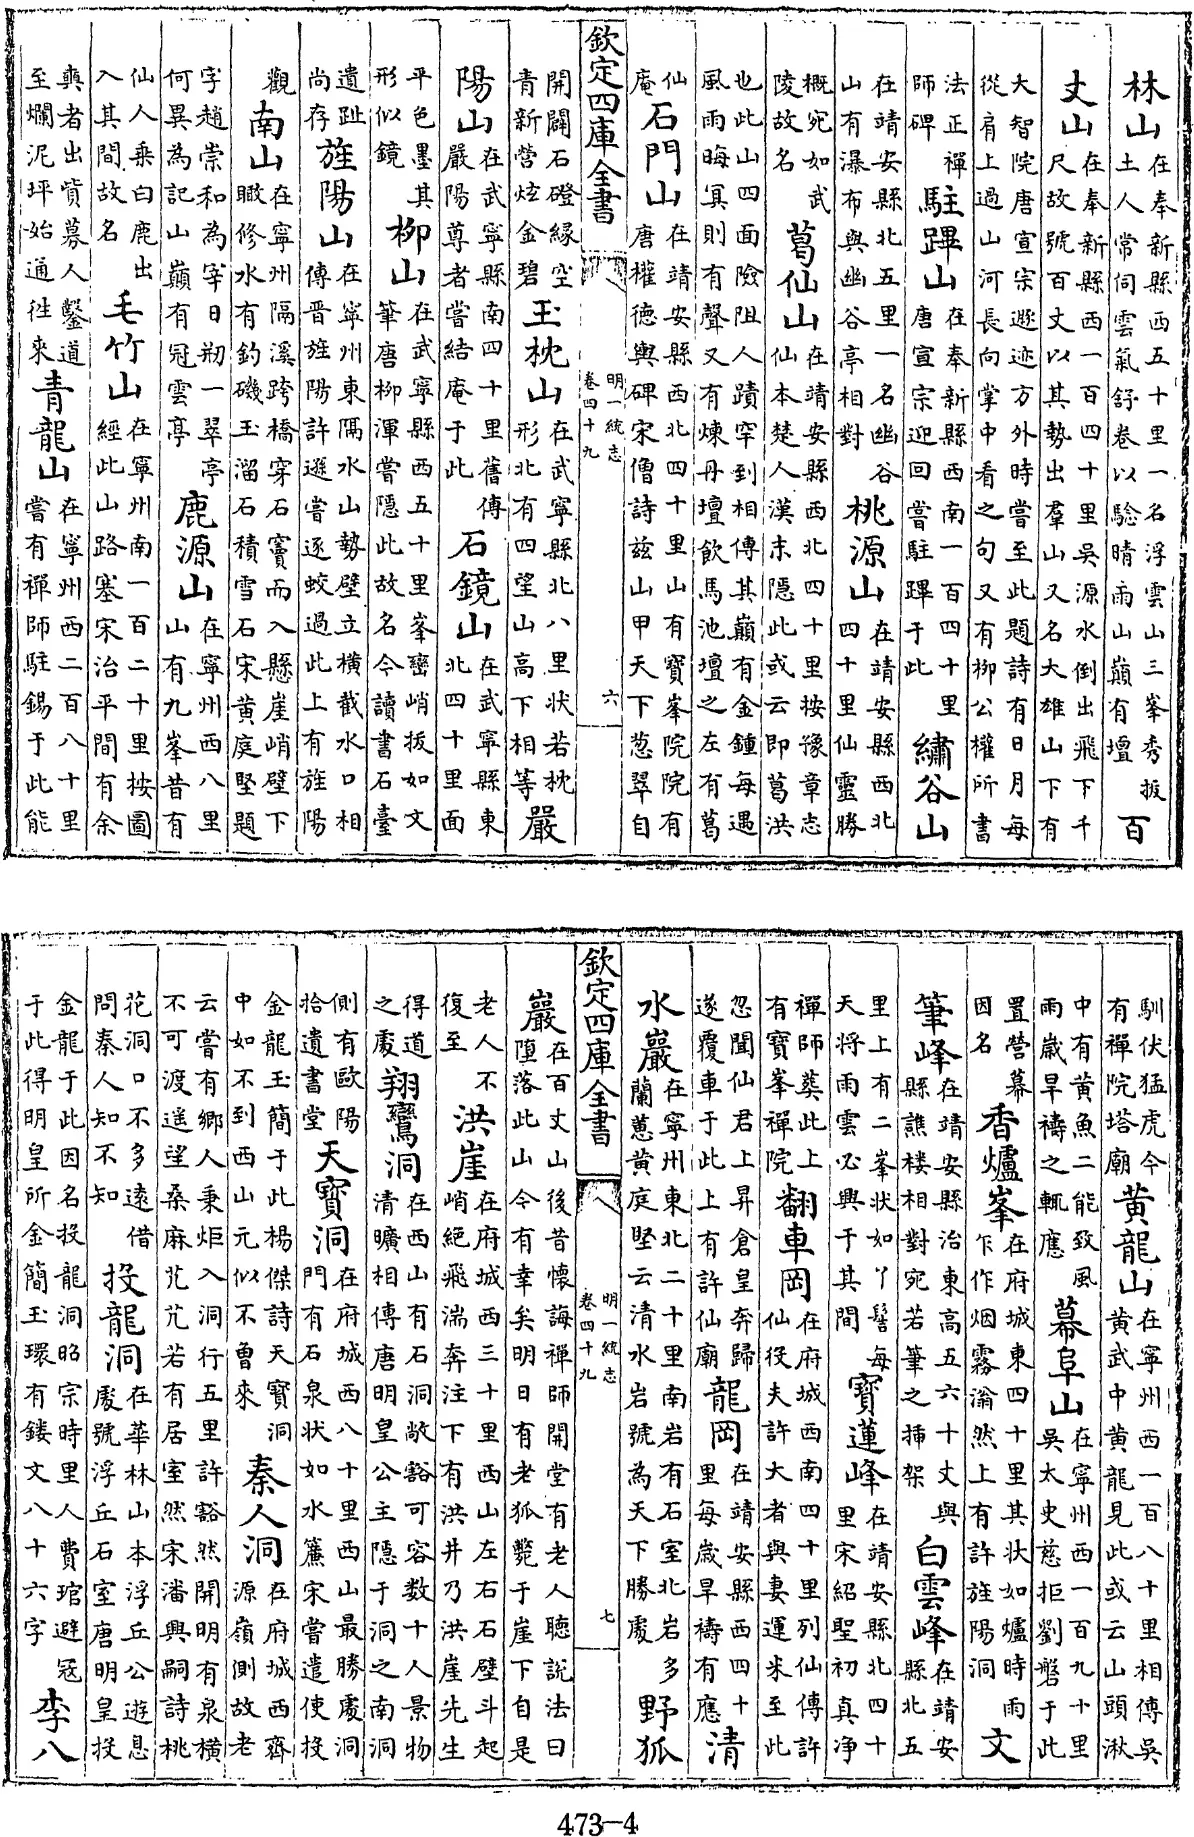 林山在奉新縣西五十里一名浮雲山三峯秀拔土人常伺雲氣舒卷以驗晴雨山巔有壇百
丈山在奉新縣西一百四十里吳源水倒出飛下千尺故號百丈以其勢出羣山又名大雄山下有
大智院唐宣宗遯迹方外時嘗至此題詩有日月每從肩上過山河長向掌中看之句又有柳公權所書
法正禪師碑駐蹕山在奉新縣西南一百四十里唐宣宗迎回嘗駐蹕于此繡谷山
在靖安縣北五里一名幽谷山有瀑布與幽谷亭相對桃源山在靖安縣西北四十里仙靈勝
概宛如武陵故名葛仙山在靖安縣西北四十里按豫章志仙本楚人漢末隱此或云即葛洪
也此山四面險阻人蹟罕到相傳其巔有金鍾每遇風雨晦冥則有聲又有煉丹壇飲馬池壇之左有葛
仙庵石門山在靖安縣西北四十里山有寶峯院院有唐權德輿碑宋僧詩兹山甲天下葱翠自
欽定四庫全書 明一統志卷四十九 六
開闢石磴緣空青新營炫金碧玉枕山在武寧縣北八里状若枕形北有四望山高下相等嚴
陽山在武寧縣南四十里舊傳嚴陽尊者嘗結庵于此石鏡山在武寧縣東北四十里面
平色墨其形似鏡柳山在武寧縣西五十里峯巒峭拔如文筆唐柳渾嘗隱此故名今讀書石臺
遺趾尚存旌陽山在寧州東隅水山勢壁立橫截水口相傳晉旌陽許遜嘗逐蛟過此上有旌陽
觀南山在寧州隔溪跨橋穿石竇而入懸崖峭壁下瞰修水有釣磯玉溜石積雪石宋黄庭堅題
字趙崇和為宰日刱一翠亭何異為記山巔有冠雲亭鹿源山在寧州西八里山有九峯昔有
仙人乘白鹿出入其間故名毛竹山在寧州南一百二十里按圖經此山路塞宋治平間有余
奭者出貲募人鑿道至爛泥坪始通徃來青龍山在寧州西二百八十里嘗有禪師駐錫于此能
馴伏猛虎今有禪院塔廟黄龍山在寧州西一百八十里相傳吳黄武中黄龍見此或云山頭湫
中有黄魚二能致風雨歲旱禱之輒應幕阜山在寧州西一百九十里吳太史慈拒劉磐于此
置營幕因名香爐峯在府城東四十里其状如爐時雨乍作烟霧瀹然上有許旌陽洞文
筆峰在靖安縣治東高五六十丈與縣譙楼相對宛若筆之揷架白雲峰在靖安縣北五
里上有二峯状如丫髻每天将雨雲必興于其間寶蓮峰在靖安縣北四十里宋紹聖初真净
禪師葬此上有寶峯禪院翻車岡在府城西南四十里列仙傳許仙役夫許大者與妻運米至此
忽聞仙君上昇倉皇奔歸遂覆車于此上有許仙廟龍岡在靖安縣西四十里每歲旱禱有應清
水巖在寧州東北二十里南岩有石室北岩多蘭蕙黄庭堅云清水岩號為天下勝處野狐
欽定四庫全書 明一統志卷四十九 七
巖在百丈山後昔懷誨禪師開堂有老人聽說法曰墮落此山今有幸矣明日有老狐斃于崖下自是
老人不復至洪崖在府城西三十里西山左右石壁斗起峭絶飛湍奔注下有洪井乃洪崖先生
得道之處翔鸞洞在西山有石洞敞豁可容数十人景物清曠相傳唐明皇公主隱于洞之南洞
側有歐陽拾遺書堂天寶洞在府城西八十里西山最勝處洞門有石泉状如水簾宋嘗遣使投
金龍玉簡于此楊傑詩天寶洞中如不到西山元似不曾來秦人洞在府城西齊源嶺側故老
云嘗有鄉人秉炬入洞行五里許豁然開明有泉橫不可渡遥望桑麻芃芃若有居室然宋潘興嗣詩桃
花洞口不多遠借問秦人知不知投龍洞在華林山本浮丘公遊息處號浮丘石室唐明皇投
金龍于此因名投龍洞昭宗時里人費琯避冦于此得明皇所金簡玉環有鏤文八十六字李八
473-4